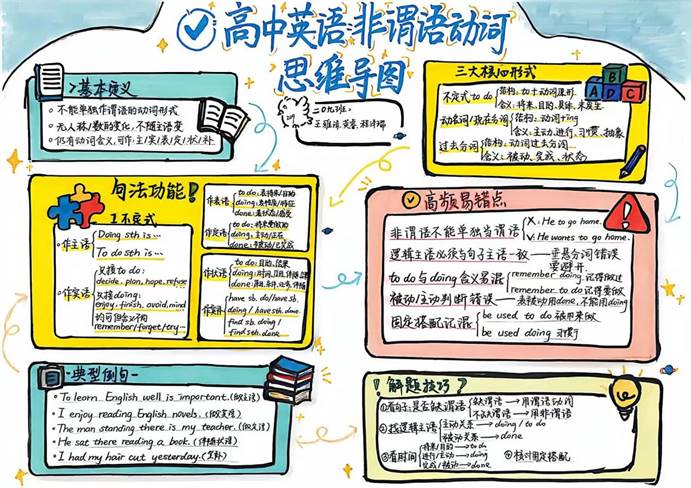 高中英语非谓语动词
思维导图
基本定义
不能单独作谓语的动词形式
无人称/数的变化,不随主语变
仍有动词含义,可作:主/宾/表/定/状/补.
三大核心形式
不定式 to do
结构:to+动词原形
含义:将来、目的、具体、未发生
动名词/现在分词
结构:动词+ing
含义:主动、进行、习惯、抽象
过去分词
结构:动词过去分词
含义:被动、完成、状态
句法功能!
作主语
Doing sth is...
To do sth is...
作宾语
只接to do:
decide, plan, hope, refuse
只接doing:
enjoy, finish, avoid, mind
均可但含义不同
remember/forget/try...
作表语
to do:表将来/目的
doing:表性质/特征
done:表状态/感受
作定语
to do:将来要做的
doing:主动/正在
done:被动/已完成
作状语
to do:目的、结果
作宾补
have sb. do/have sb.
doing / have sth. done.
find sb. doing /
find sth. done.
高频易错点
非谓语不能单独当谓语
X: He to go home.
V: He wants to go home.
逻辑主语必须与句子主语一致
垂悬分词错误
要避开.
to do与doing含义易混
remember doing 记得做过
remember to do 记得要做
被动/主动判断错误
表被动用done,不能用doing
固定搭配记混
be used to do 被用来做
be used doing 习惯于
典型例句
To learn English well is important. (做主语)
I enjoy reading English novels. (做宾语)
The man standing there is my teacher. (做定语)
He sat there reading a book. (伴随状语)
I had my hair cut yesterday. (宾补)
解题技巧?
①看句子是否缺谓语
缺谓语→用谓语动词
不缺谓语→用非谓语
②找逻辑主语
主动关系→doing / to do
被动关系→done
③看时间
将来/目的→to do
进行/主动→doing
完成/被动→done
④核对固定搭配